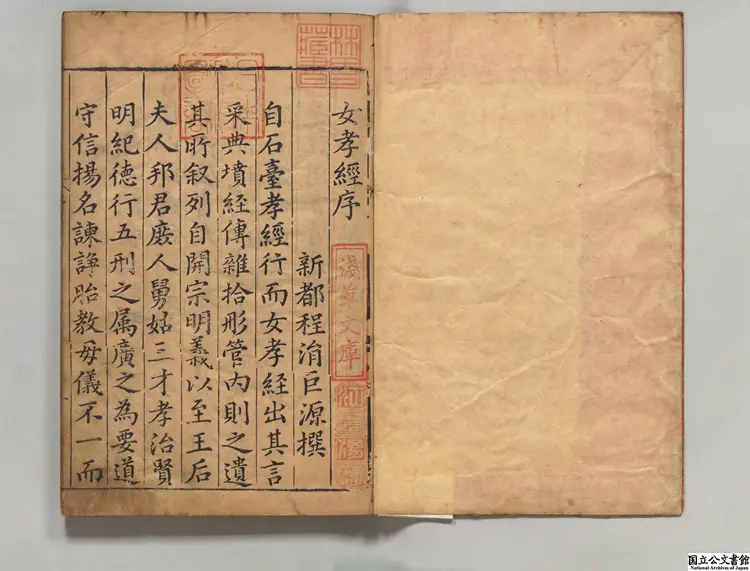 女孝經序
新都程涓巨源撰
自石臺孝經行而女孝經出其言
采典墳經傳雜拾彤管内則之遺
其所叙列自開宗明義以至王后
夫人邦君庶人舅姑三才孝治賢
明紀德行五刑之属廣之為要道
守信揚名諫諍胎教母儀不一而
林氏藏書
淺草文庫
国立公文書館
National Archives of Japan